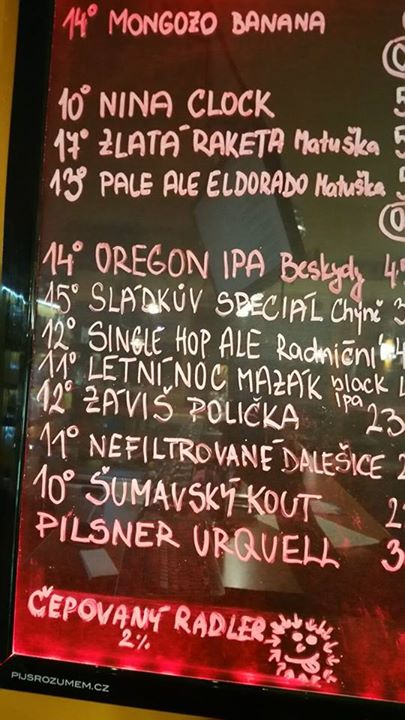 14° MONGOZO BANANA
10° NINA CLOCK
17° ZLATÁ RAKETA Matuška
13° PALE ALE ELDORADO Matuška
14° OREGON IPA Beskydy
15° SLÁDKŮV SPECIÁL Chýně
12° SINGLE HOP ALE Radniční
11° LETNÍ NOC MAZÁK black ipa
12° ZÁVIŠ POLIČKA 23
11° NEFILTROVANÉ DALEŠICE
10° ŠUMAVSKÝ KOUT
PILSNER URQUELL
ČEPOVANÝ RADLER
2%
PIJSROZUMEM.CZ